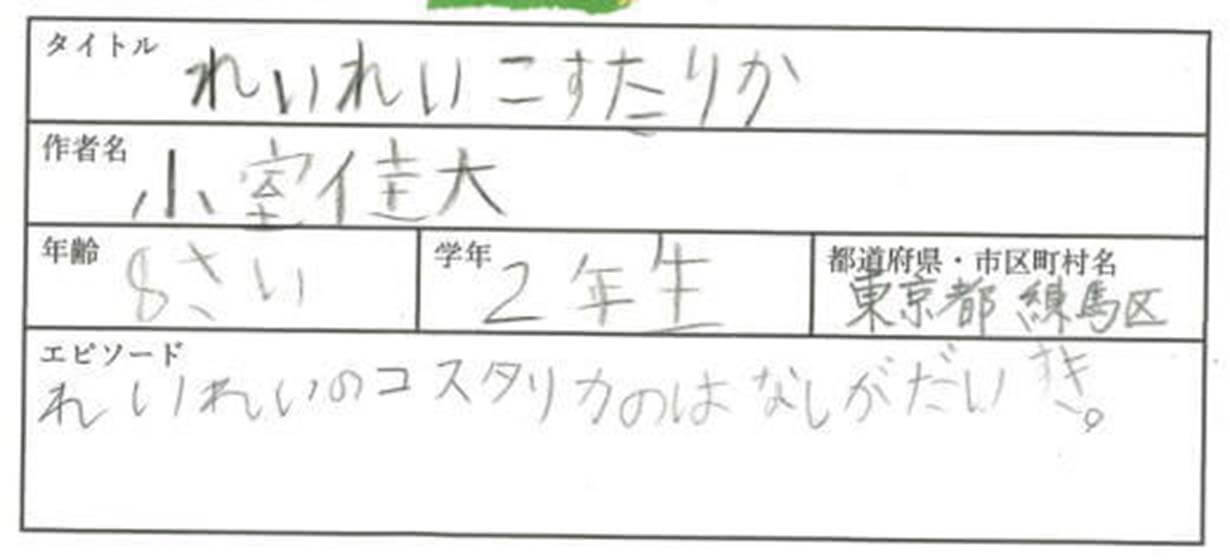 タイトル
れいれいこすたりか
作者名
小室佳大
年齢
8さい
学年
2年生
都道府県・市区町村名
東京都 練馬区
エピソード
れいれいのコスタリカのはなしがだいすき。